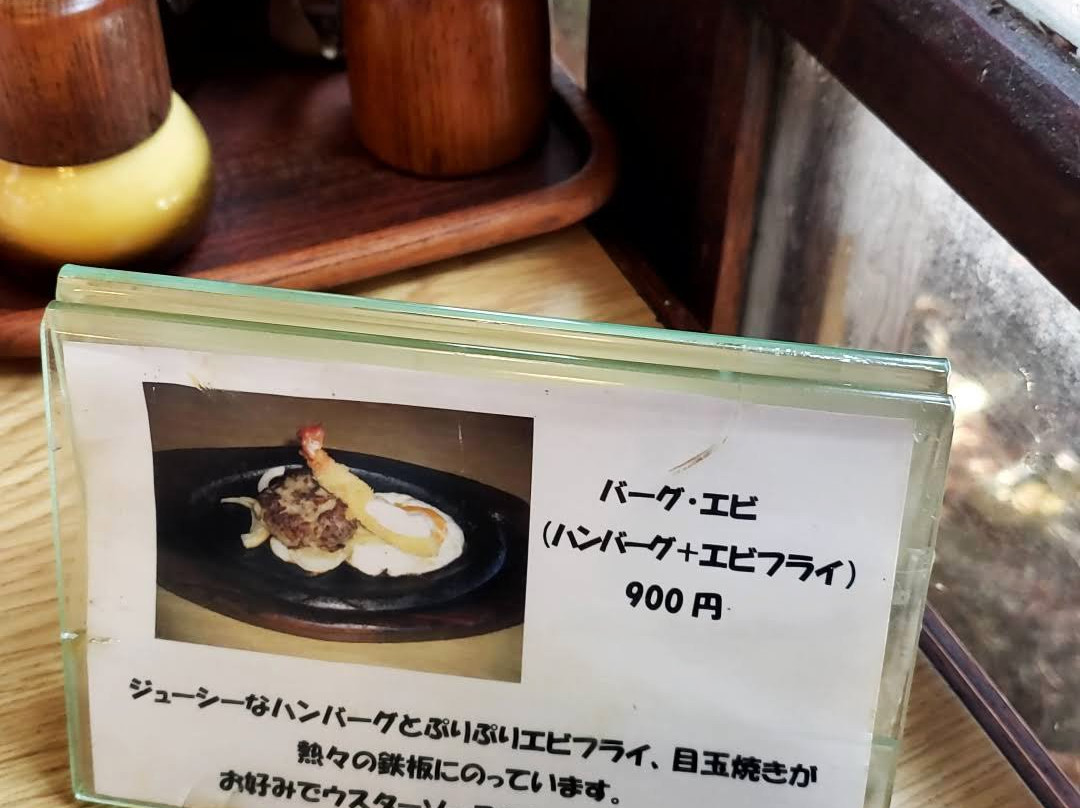 バーグ・エビ
(ハンバーグ+エビフライ)
900円
ジューシーなハンバーグとぷりぷりエビフライ、目玉焼きが
熱々の鉄板にのっています。
お好みでウスターソ